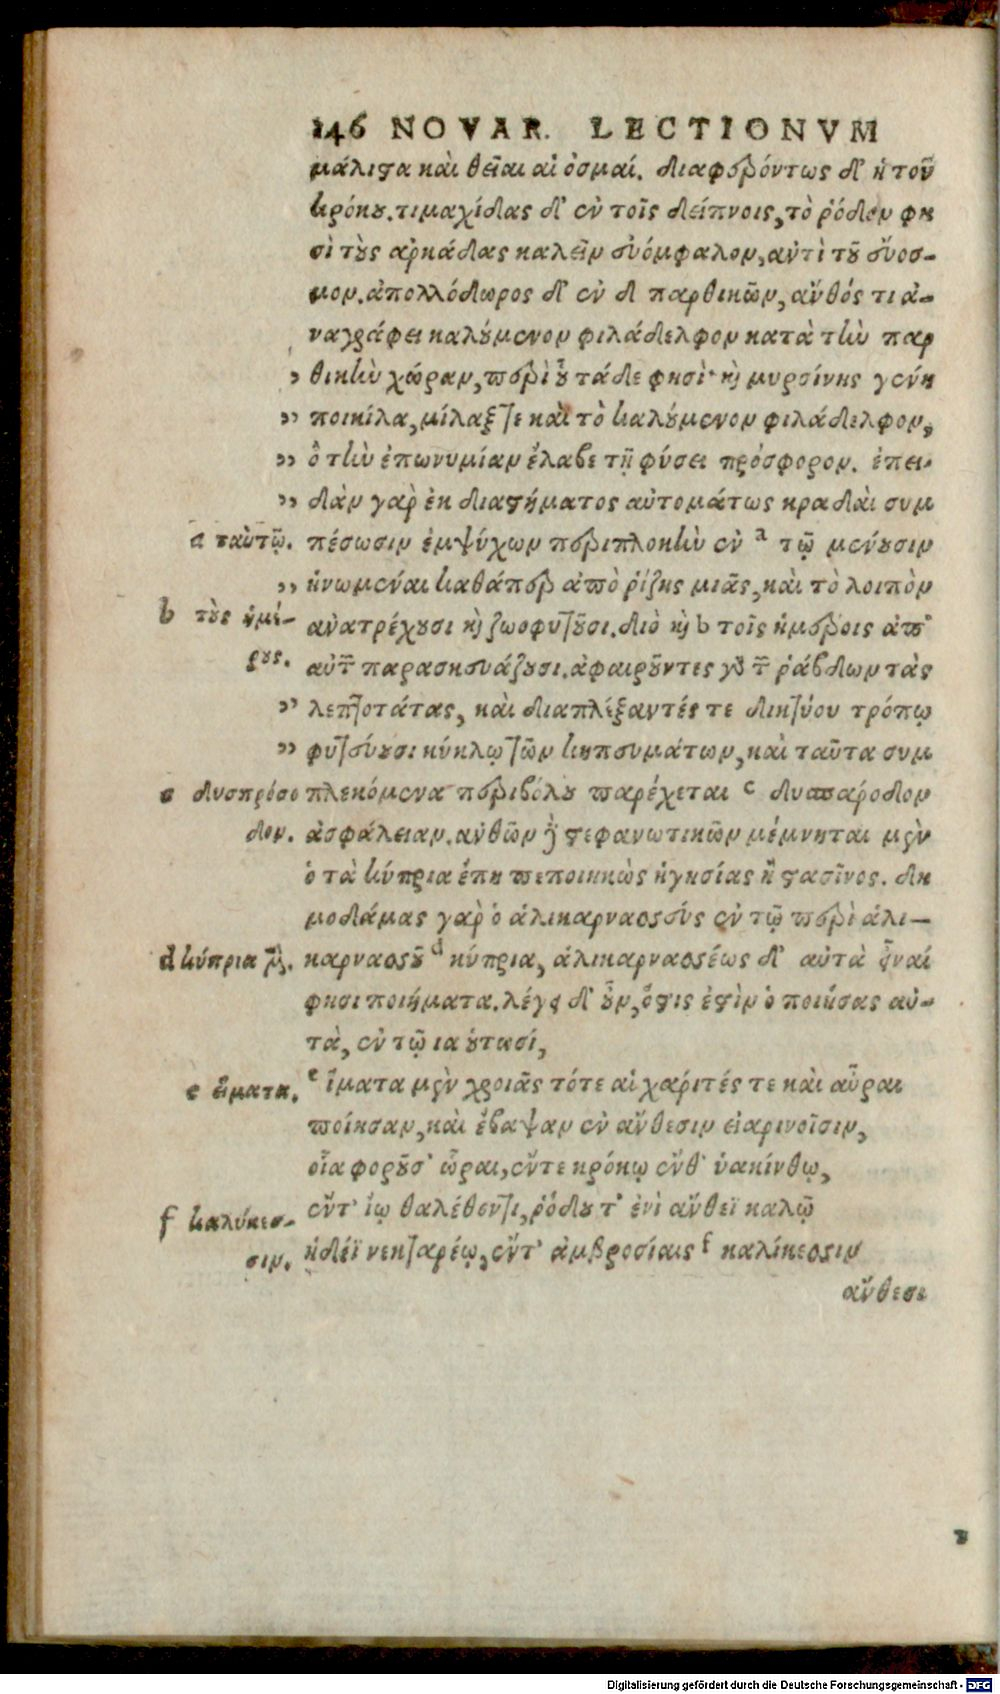 146 NOVAR. LECTIONVM
μάλιστα καὶ θεῖαι αἱ ὀσμαί. διαφερόντως δ' ἡ τοῦ
κρόκου. τιμαχίδας δ' ἐν τοῖς δείπνοις, τὸ ῥόδον φη
σὶ τοὺς ἀρκάδας καλεῖν εὐόμφαλον, ἀντὶ τοῦ εὔοσ-
μον. ἀπολλόδωρος δ' ἐν δ παρθικῶν, ἄνθός τι ἀ-
ναγράφει καλούμενον φιλάδελφον κατὰ τὴν παρ
» θικὴν χώραν, περὶ οὗ τάδε φησὶ· καὶ μυρσίνης γένη
» ποικίλα, μίλαξ τε καὶ τὸ καλούμενον φιλάδελφον,
» ὃ τὴν ἐπωνυμίαν ἔλαβε τῇ φύσει πρόσφορον. ἐπει-
» δὰν γὰρ ἐκ διαστήματος αὐτομάτως κραδαὶ συμ
a ταὐτῷ. πέσωσιν ἐμψύχων περιπλοκὴν ἐν a τῷ μένουσιν
» ἡνωμέναι καθάπερ ἀπὸ ῥίζης μιᾶς, καὶ τὸ λοιπὸν
b τοὺς ἡμέ- ἀνατρέχουσι καὶ ζωοφυτοῦσι. διὸ καὶ b τοῖς ἡμέροις ἀπ'
ρους. αὐτῶν παρασκευάζουσι. ἀφαιροῦντες γὰρ τῶν ῥάβδων τὰς
» λεπτοτάτας, καὶ διαπλέξαντές τε δικτύου τρόπῳ
» φυτεύουσι κύκλῳ τῶν κηπευμάτων, καὶ ταῦτα συμ
c δυσπρόσο πλεκόμενα περιβόλου παρέχεται c δυσπάροδον
δον. ἀσφάλειαν. ἀνθῶν δὲ στεφανωτικῶν μέμνηται μὲν
ὁ τὰ κύπρια ἔπη πεποιηκὼς ἡγησίας ἢ στασῖνος. δη
μοδάμας γὰρ ὁ ἁλικαρνασσεύς ἐν τῷ περὶ ἁλι-
d κύπρια μὲν. καρνασσοῦ d κύπρια, ἁλικαρνασσέως δ' αὐτὰ εἶναί
φησι ποιήματα. λέγει δ' οὖν, ὅστις ἐστὶν ὁ ποιήσας αὐ-
τὰ, ἐν τῷ ια οὑτωσί,
e εἵματα. e ἵματα μὲν χροιᾶς τότε αἱ χάριτές τε καὶ αὖραι
ποίησαν, καὶ ἔβαψαν ἐν ἄνθεσιν εἰαρινοῖσιν,
οἷα φοροῦσ' ὧραι, ἔντε κρόκῳ ἔνθ' ὑακίνθῳ,
f καλύκεσ- ἔντ' ἴῳ θαλέθοντι, ῥόδου τ' ἐνὶ ἄνθεϊ καλῷ
σιν. ἡδέϊ νεκταρέῳ, ἔντ' ἀμβροσίαις f καλίκεσσιν
ἄνθεσι